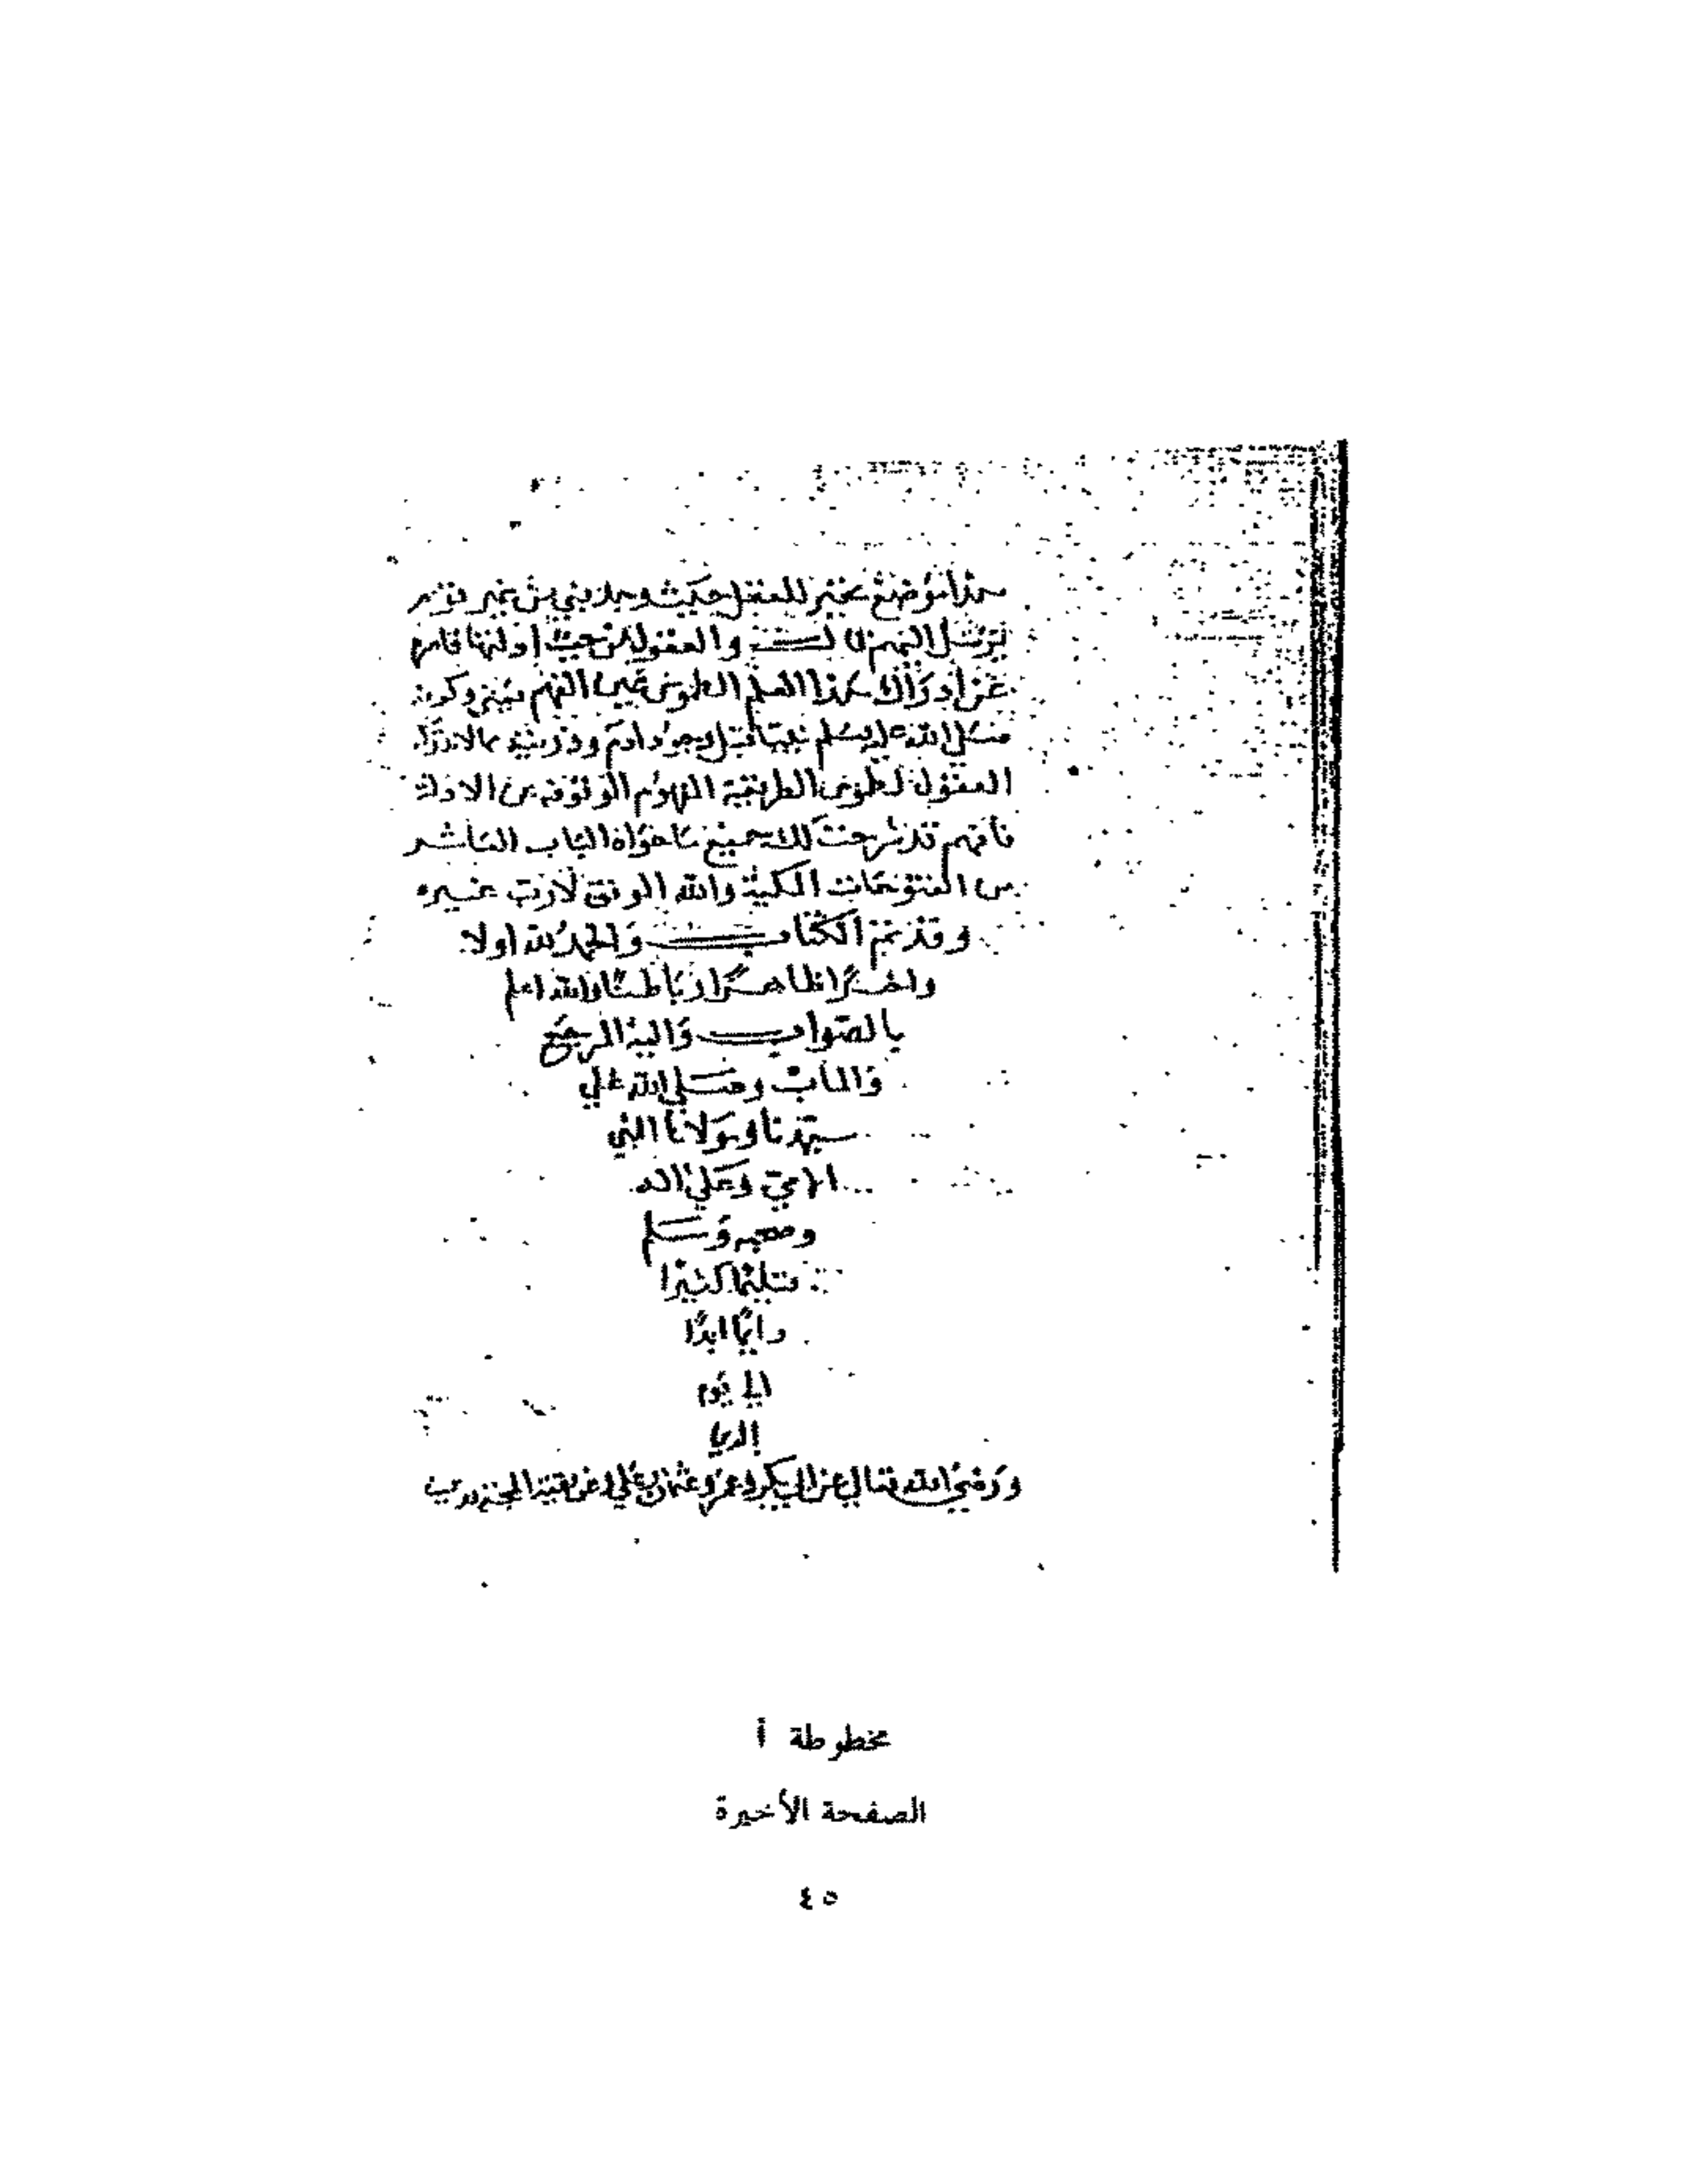 هذا موضع تحير للعقل حيث وجد نبي من غير قوم
يرسل اليهم قال والعقول من حيث ادلتها قاصرة
عن ادراك هذا العلم لخلوهن عين الفهم يعني وكونه
صلى الله عليه وسلم نبيا قبل وجود ادم وذريته مالا تدركه
العقول لخلوهن الطريقة الموقوفه من الادلة
فافهم قد شرحت لك جميع ما حواه الباب العاشر
من الفتوحات المكية والله الموفق لا رب غيره
وقد تم الكتاب والحمد لله اولا
واخرا ظاهرا وباطنا والله اعلم
بالصواب واليه المرجع
والماب وصلى الله علي
سيدنا ومولانا النبي
الامي وعلي اله
وصحبه وسلم
تسليما كثيرا
دايما ابدا
الي يوم
الدين
ورضي الله تعالي عن ابي بكر وعمر وعثمان وعلي وعن بقية الصحابة اجمعين
مخطوطة أ
الصفحة الأخيرة
٤٥